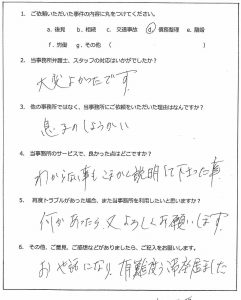 1. ご依頼いただいた事件の内容に丸をつけてください。
a. 後見 b. 相続 c. 交通事故 d. 債務整理 e. 離婚
f. 労働 g. その他（ ）
2. 当事務所弁護士、スタッフの対応はいかがでしたか？
大変よかったです。
3. 他の事務所ではなく、当事務所にご依頼をいただいた理由はなんですか？
息子のしょうかい
4. 当事務所のサービスで、良かった点はどこですか？
わからない事もこまかく説明して下さった事
5. 再度トラブルがあった場合、また当事務所を利用したいと思いますか？
何かあったら又よろしくお願いします。
6. その他、ご意見、ご感想などがありましたら、ご記入をお願いします。
お世話になり有難度う御座居ました